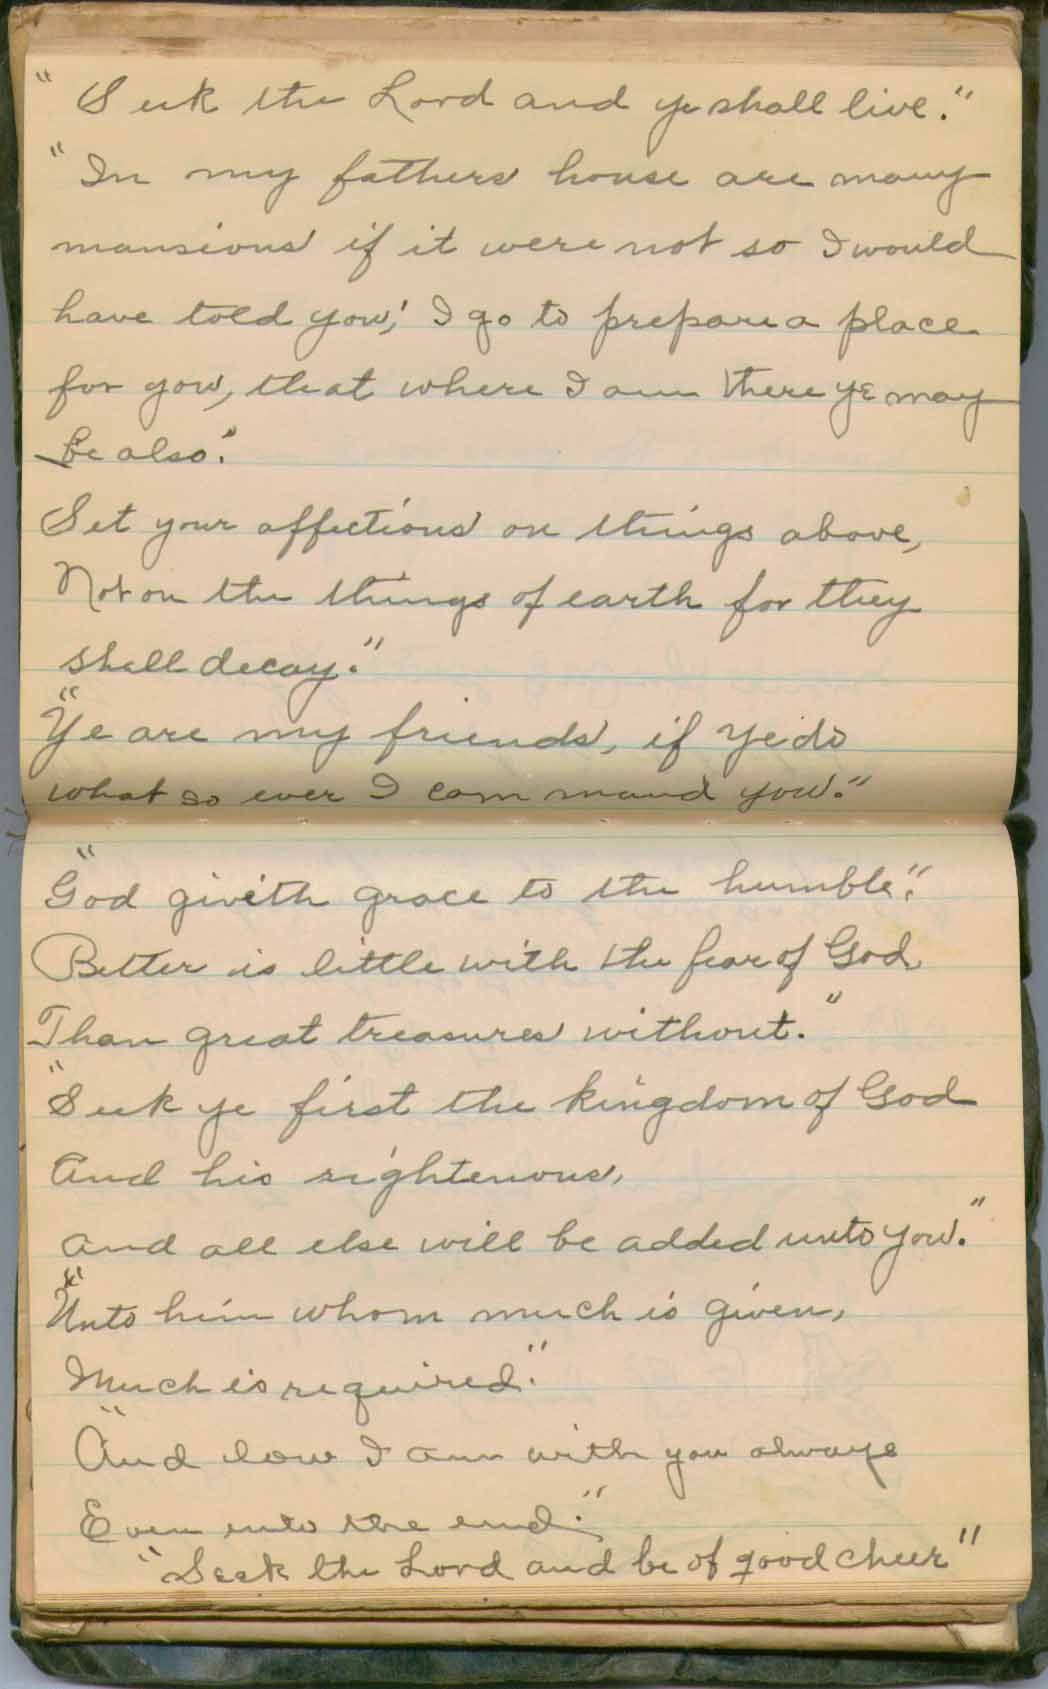 "Seek the Lord and ye shall live."
"In my fathers house are many
mansions if it were not so I would
have told you,' I go to prepare a place
for you, that where I am there ye may
be also."
Set your affections on things above,
Not on the things of earth for they
shall decay."
"Ye are my friends, if ye do
what so ever I com mand you."
"God giveth grace to the humble".
Better is little with the fear of God,
Than great treasures without."
"Seek ye first the kingdom of God
And his rightenous,
and all else will be added unto you."
"Unto him whom much is given,
Much is required."
"And low I am with you always
Even unto the end."
"Seek the Lord and be of good cheer"